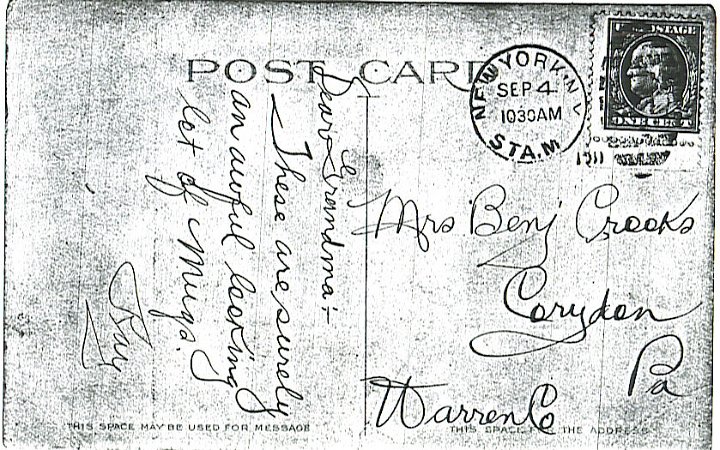 POST CARD
NEW YORK, N.Y.
SEP 4
1030AM
STA. M
1911
POSTAGE
ONE CENT
Dear Grandma:-
These are surely
an awful looking
lot of Mugs.
Ray
Mrs Benj Crooks
Corydon
Pa
Warren Co
THIS SPACE MAY BE USED FOR MESSAGE
THIS SPACE FOR THE ADDRESS